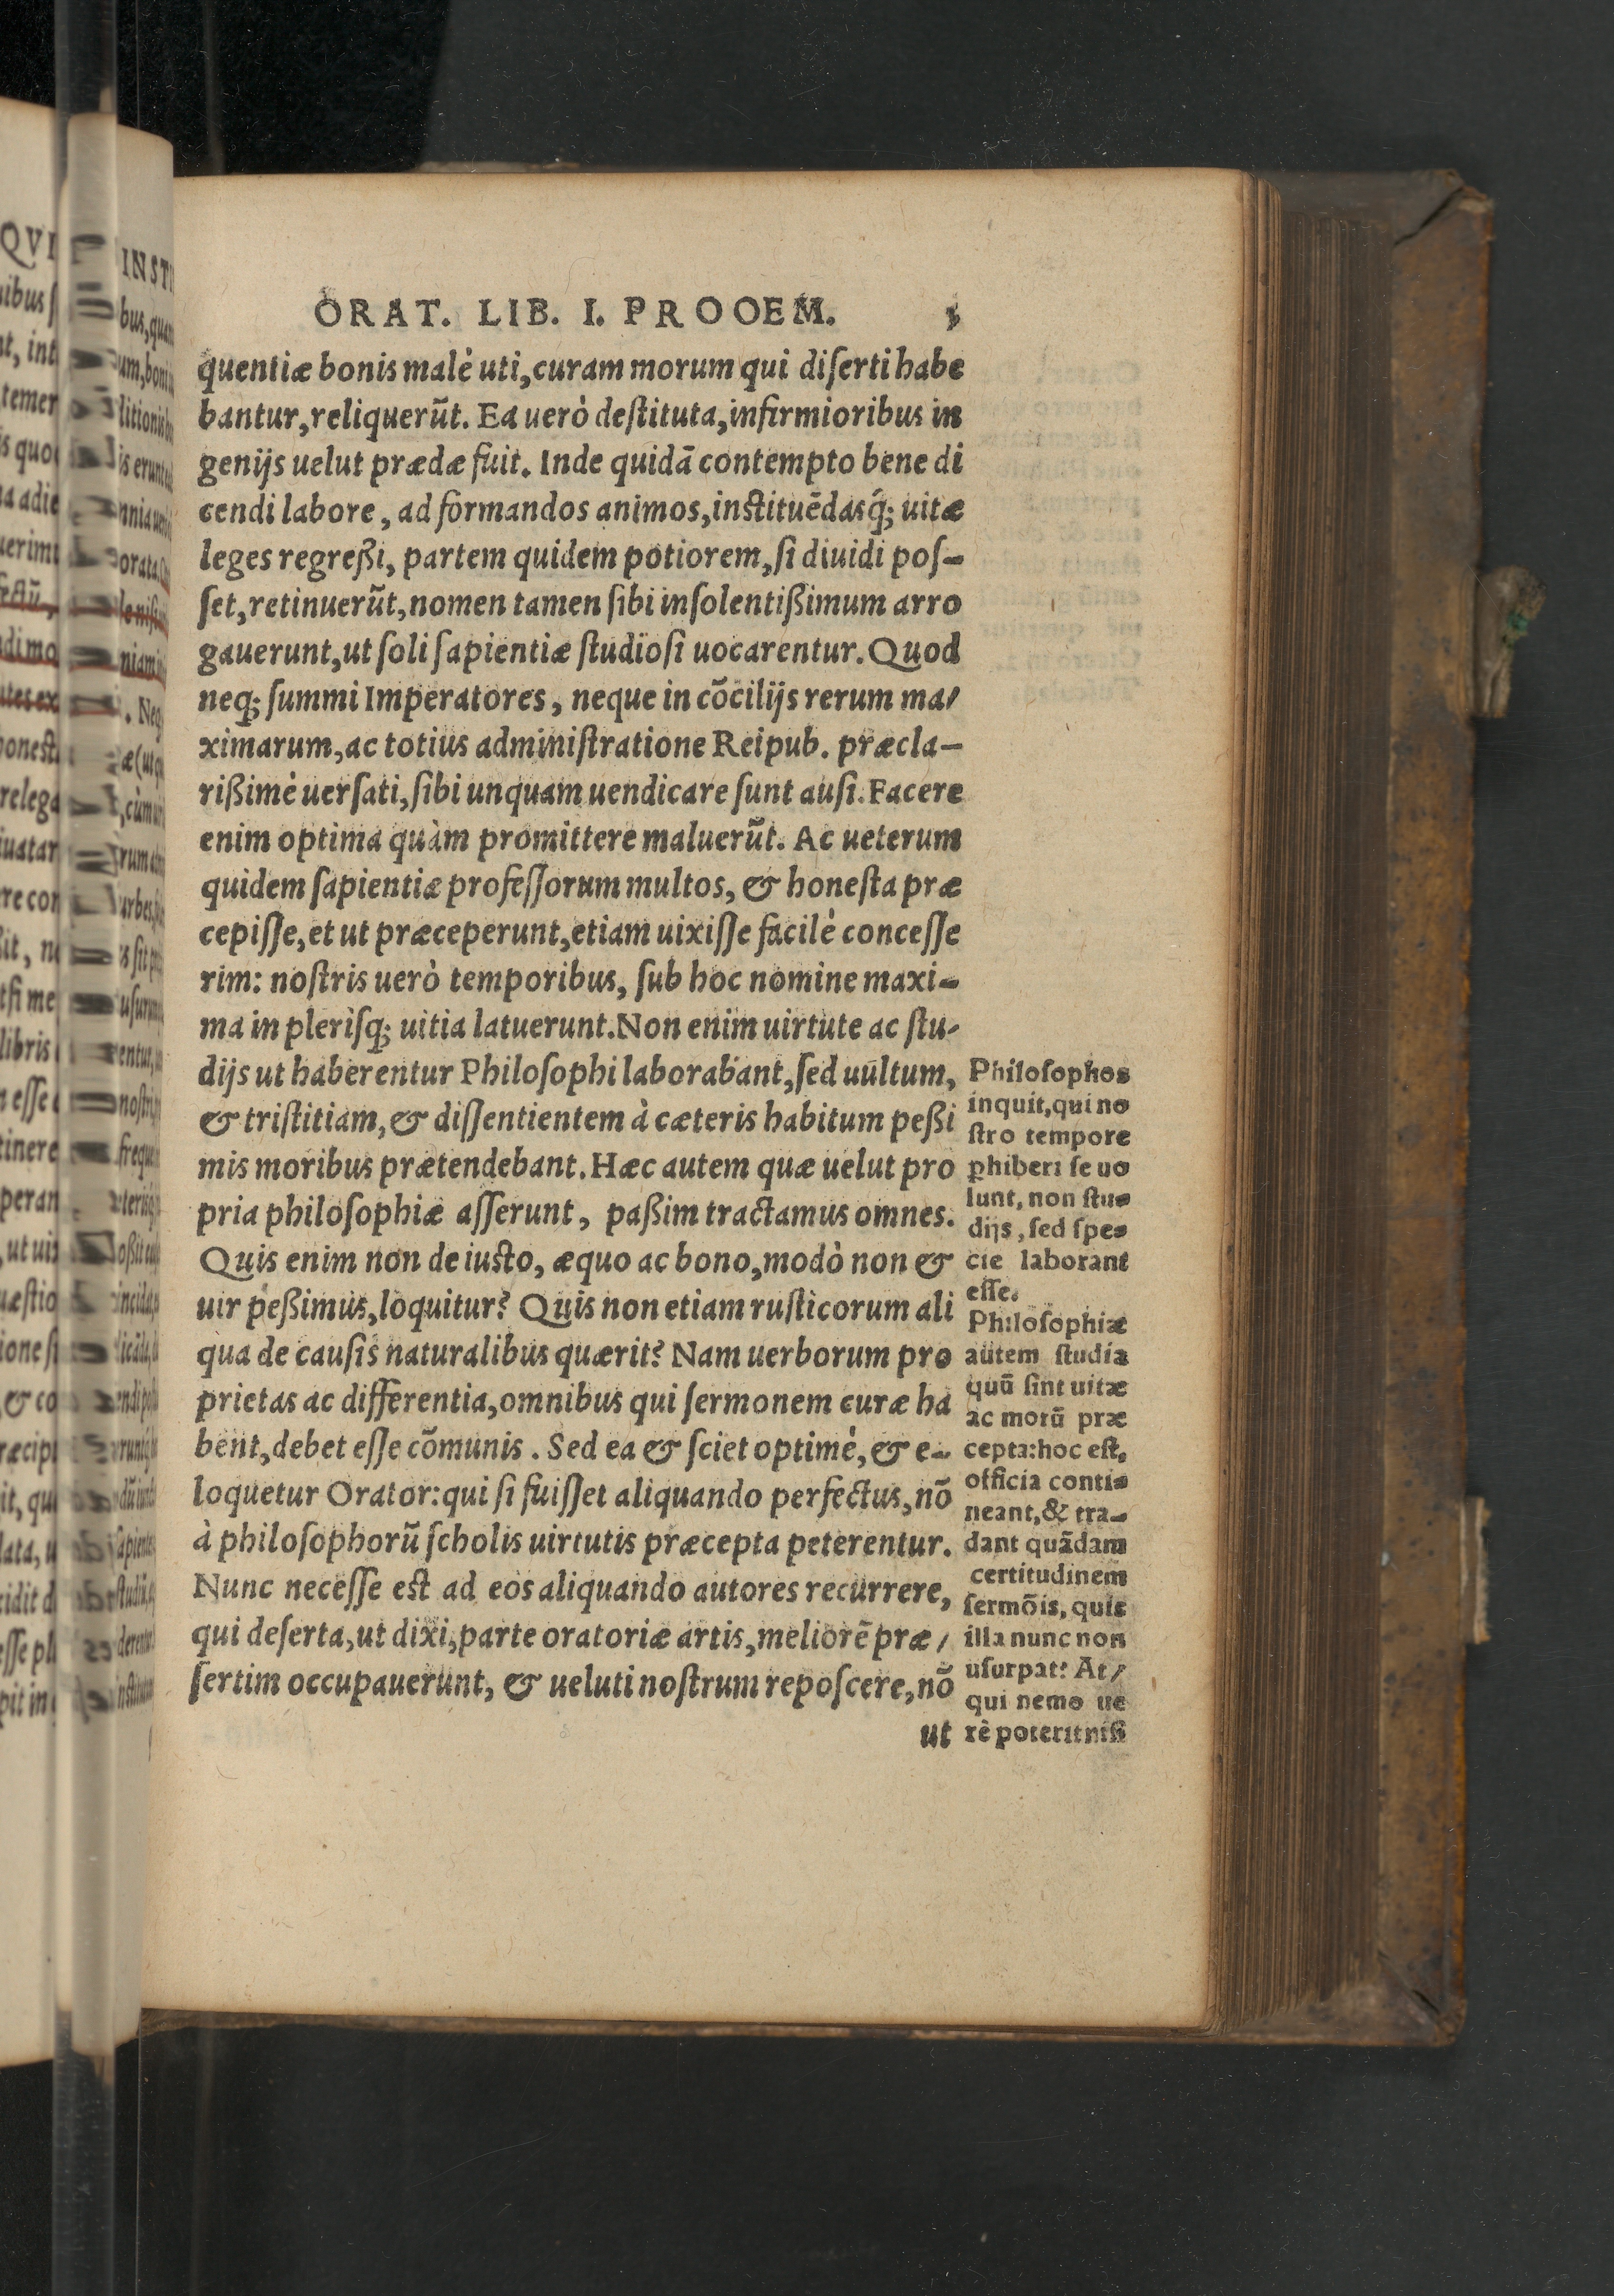 ORAT. LIB. I. PROOEM.
quentiæ bonis malè uti, curam morum qui diſerti habe
bantur, reliquerũt. Ea uerò deſtituta, infirmioribus in
genijs uelut prædæ fuit. Inde quidã contempto bene di
cendi labore, ad formandos animos, inſtituẽdasq́; uitæ
leges regreßi, partem quidem potiorem, ſi diuidi poſ-
ſet, retinuerũt, nomen tamen ſibi inſolentißimum arro
gauerunt, ut ſoli ſapientiæ ſtudioſi uocarentur. Quod
neq; ſummi Imperatores, neque in cõcilijs rerum ma/
ximarum, ac totius adminiſtratione Reipub. præcla-
rißimè uerſati, ſibi unquam uendicare ſunt auſi. Facere
enim optima quàm promittere maluerũt. Ac ueterum
quidem ſapientiæ profeſſorum multos, & honeſta præ
cepiſſe, et ut præceperunt, etiam uixiſſe facilè conceſſe
rim: noſtris uerò temporibus, ſub hoc nomine maxi-
ma in pleriſq; uitia latuerunt. Non enim uirtute ac ſtu-
dijs ut haberentur Philoſophi laborabant, ſed uultum,
& triſtitiam, & diſſentientem à cæteris habitum peßi
mis moribus prætendebant. Hæc autem quæ uelut pro
pria philoſophiæ aſſerunt, paßim tractamus omnes.
Quis enim non de iuſto, æquo ac bono, modò non &
uir peßimus, loquitur? Quis non etiam ruſticorum ali
qua de cauſis naturalibus quærit? Nam uerborum pro
prietas ac differentia, omnibus qui ſermonem curæ ha
bent, debet eſſe cõmunis. Sed ea & ſciet optimè, & e-
loquetur Orator: qui ſi fuiſſet aliquando perfectus, nõ
à philoſophorũ ſcholis uirtutis præcepta peterentur.
Nunc neceſſe eſt ad eos aliquando autores recurrere,
qui deſerta, ut dixi, parte oratoriæ artis, meliorẽ præ/
ſertim occupauerunt, & ueluti noſtrum repoſcere, nõ
ut
Philoſophos
inquit, qui no
ſtro tempore
ꝑhiberi ſe uo
lunt, non ſtu-
dijs, ſed ſpe-
cie laborant
eſſe.
Philoſophiæ
autem ſtudia
quũ ſint uitæ
ac morũ præ
cepta: hoc eſt,
officia conti-
neant, & tra-
dant quãdam
certitudinem
ſermõis, quis
illa nunc non
uſurpat? At/
qui nemo ue
rè poterit niſi